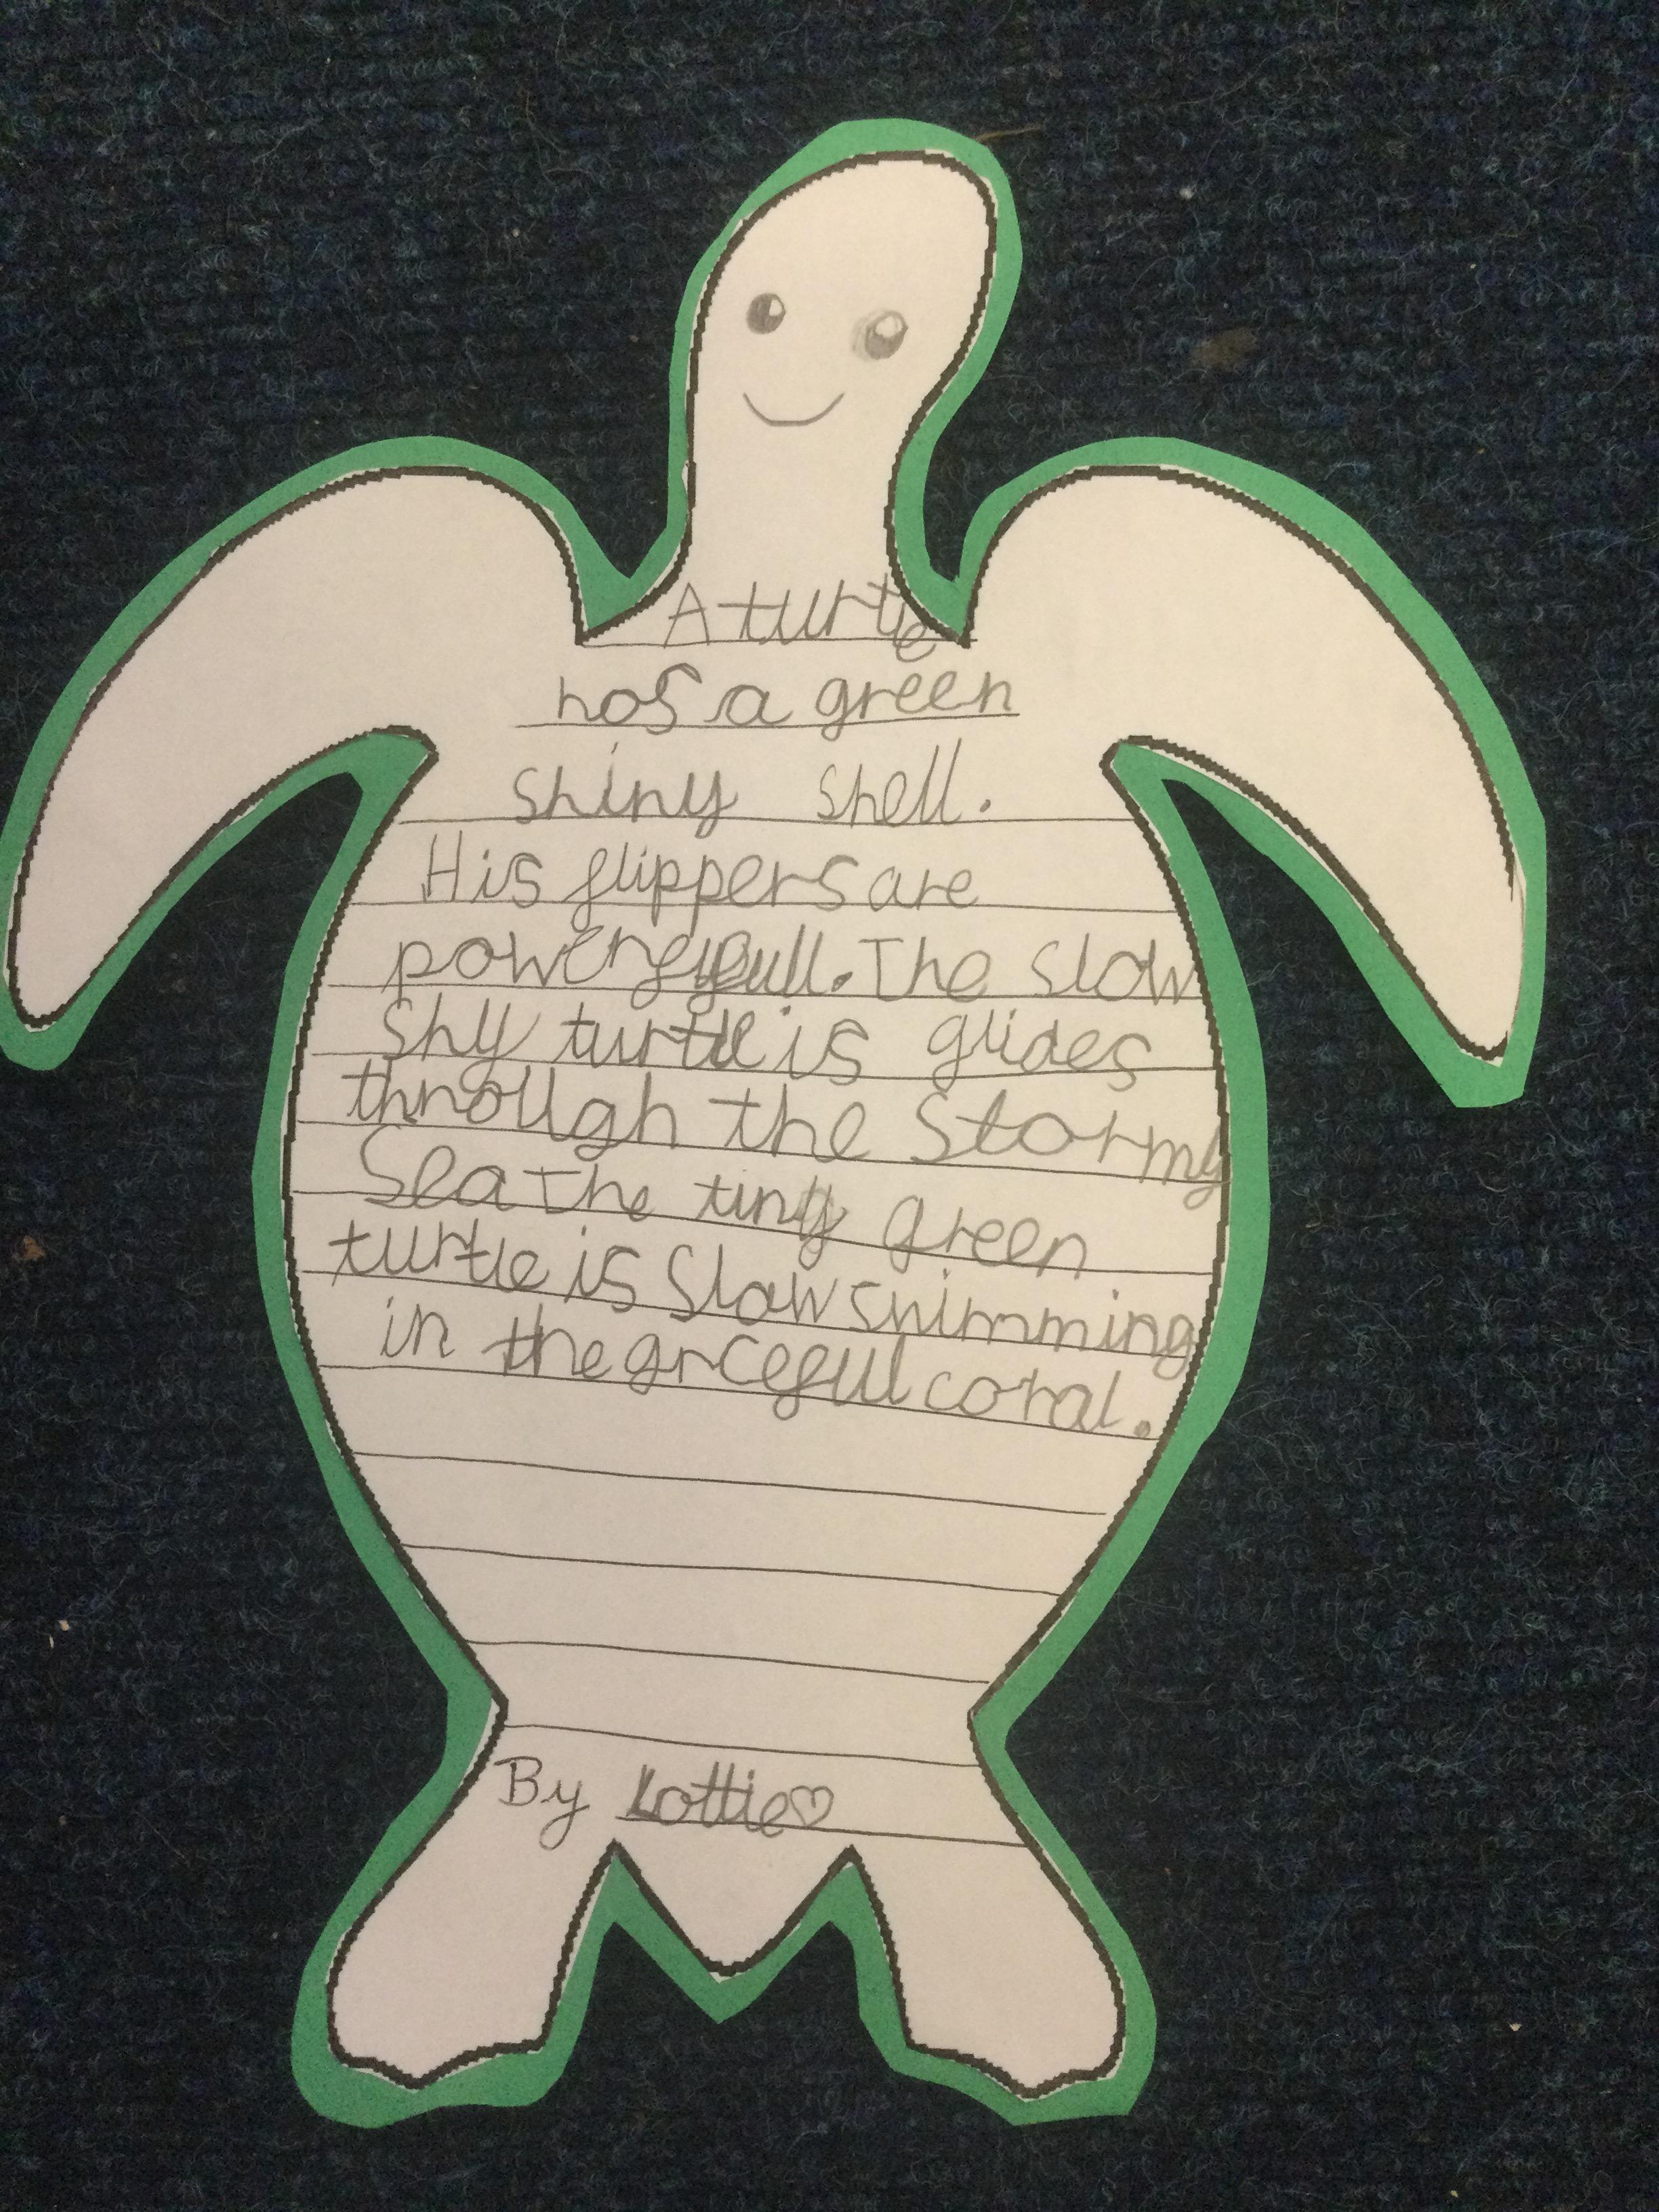 A turtle
has a green
shiny shell.
His flippers are
powerfull. The slow
shy turtle is glides
through the stormy
Sea The tiny green
turtle is slow swimming
in the grceful coral.
By Lottie♡